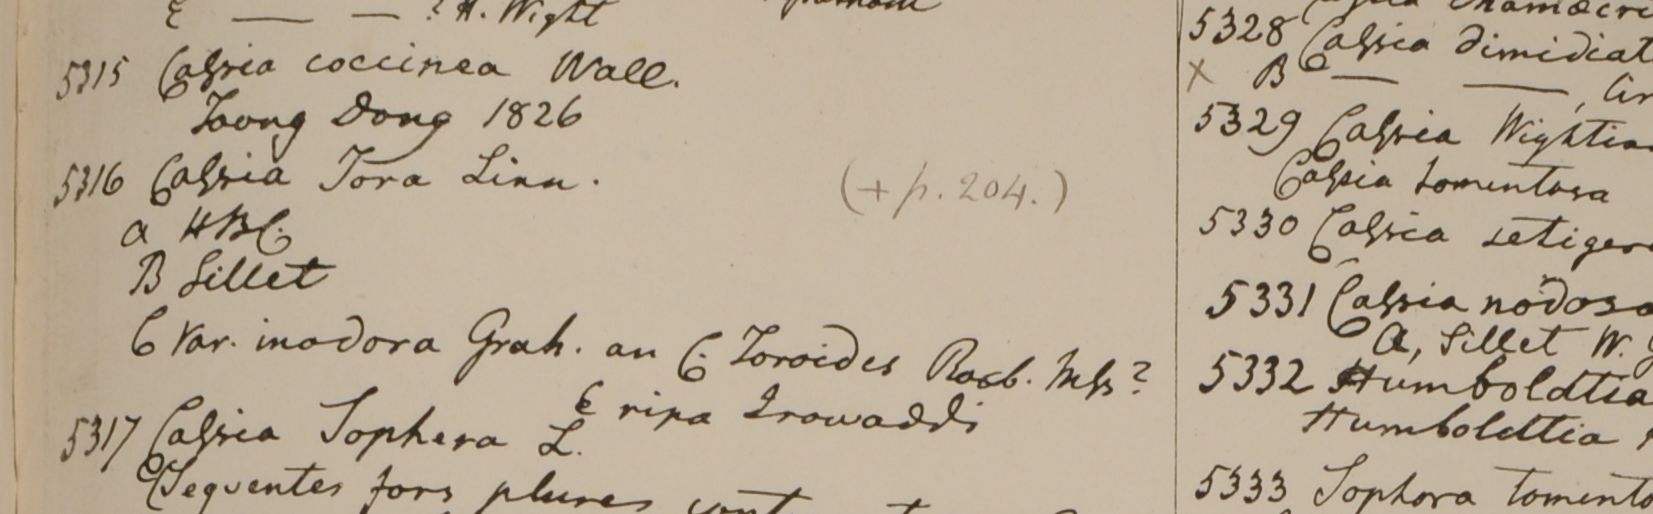 E — — ? H. Wight
5315 Cassia coccinea Wall.
Toong Dong 1826
5316 Cassia Tora Linn. (+ p. 204.)
a HBC.
B Sillet
C Var. inodora Grah. an C. Toroides Roxb. Mss?
E ripa Irowaddi
5317 Cassia Sophera L.
Sequentes fors plures
5328 Cassia dimidiat
X B — —,
5329 Cassia Wightia
Cassia tomentosa
5330 Cassia setiger
5331 Cassia nodosa
A, Sillet W.
5332 Humboldtia
Humboldtia
5333 Sophora tomento